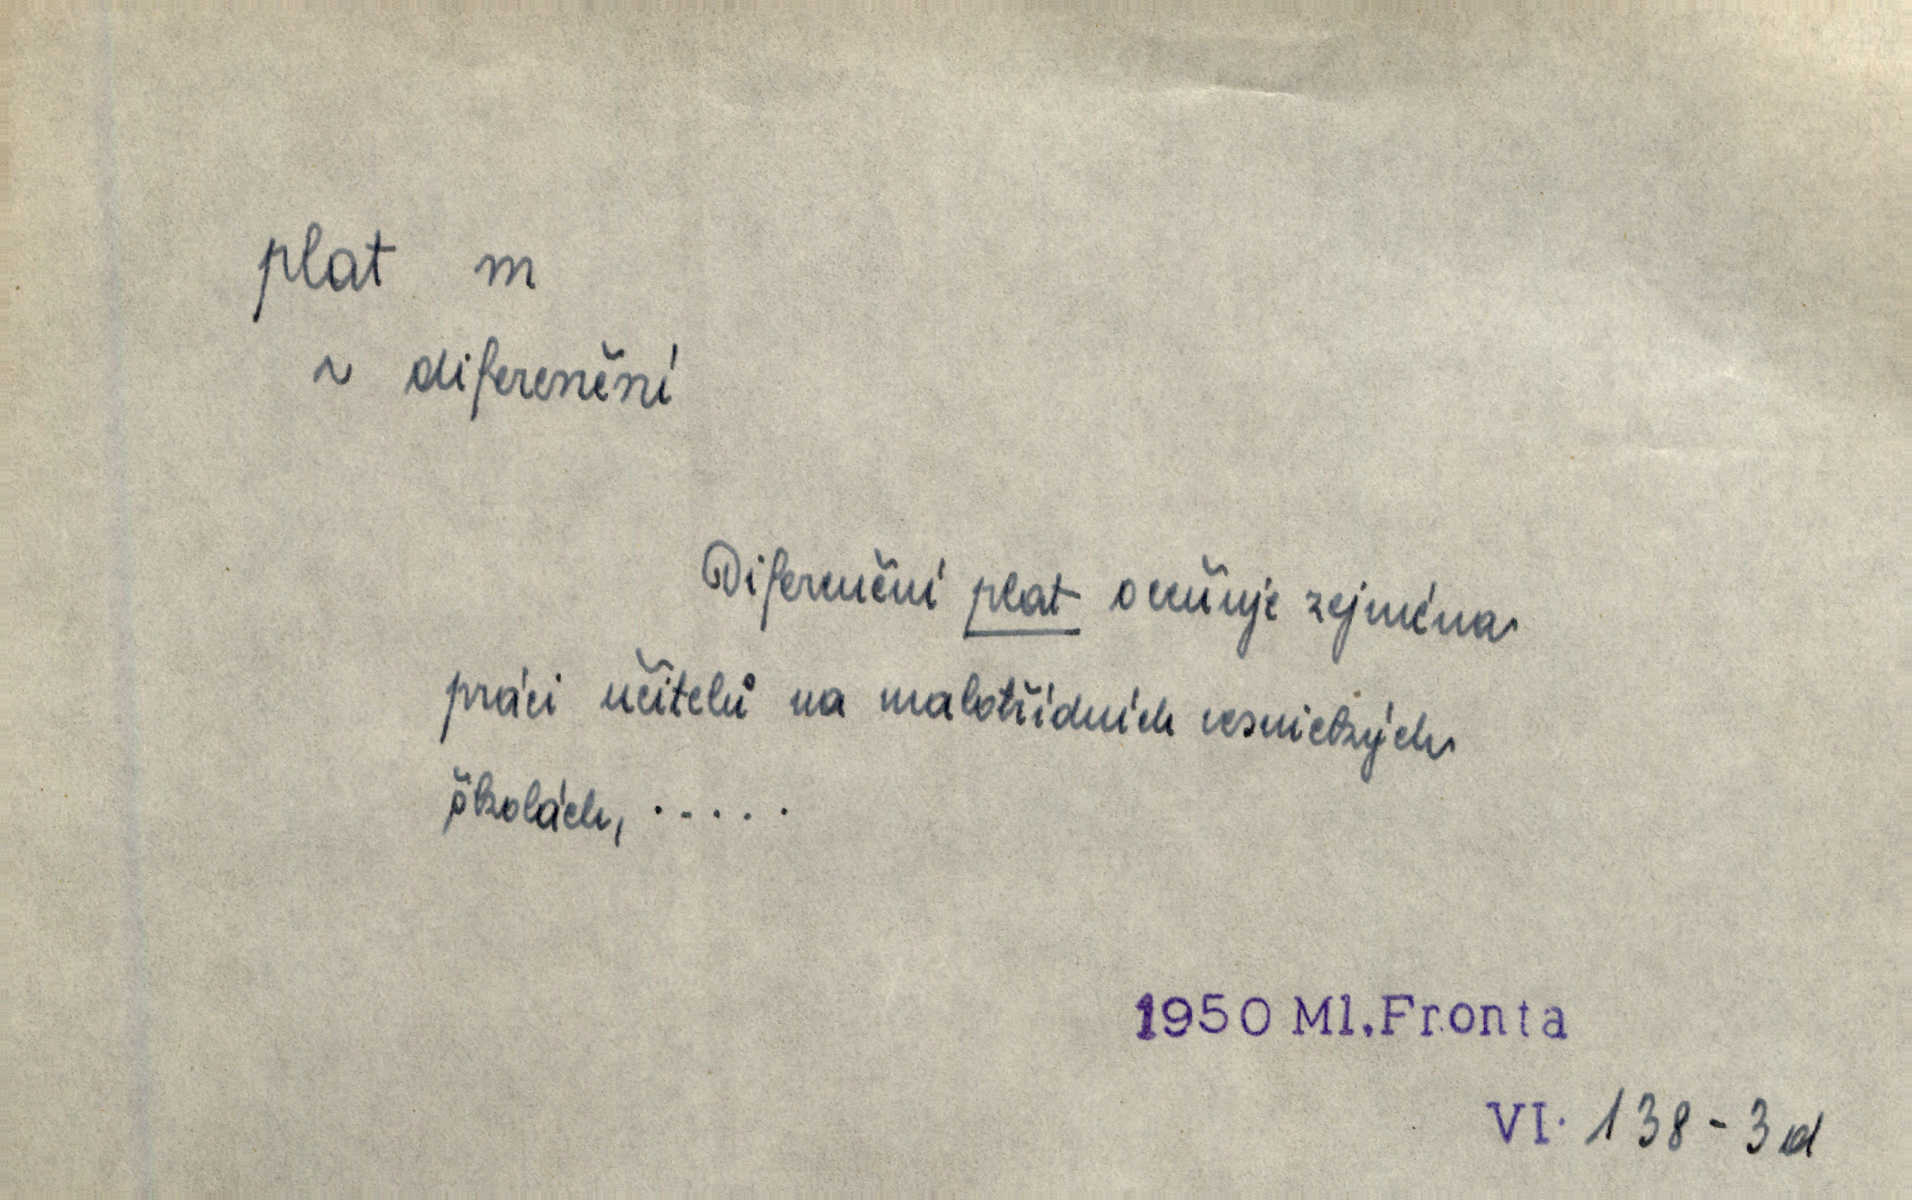 plat m
~ diferenční
Diferenční plat oceňuje zejména
práci učitelů na malotřídních vesnických
školách, .....
1950 Ml.Fronta
VI. 138-3d